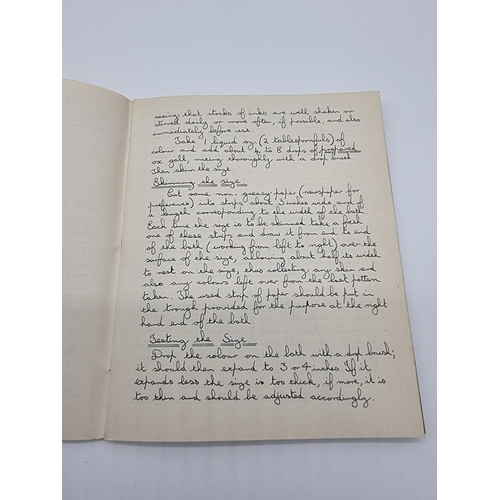 seeing that stocks of inks are well shaken or
stirred daily or more often, if possible, and also
immediately before use.
Take 1 liquid oz. (2 tablespoonfuls) of
colour and add about 4 to 8 drops of prepared
ox gall, mixing thoroughly with a drop brush
Then skim the size.
Skimming the size
Cut some non greasy paper (newspaper for
preference) into strips about 3 inches wide and of
a length corresponding to the width of the bath.
Each time the size is to be skimmed take a fresh
one of these strips and draw it from end to end
of the bath (working from left to right) over the
surface of the size, allowing about half its width
to rest on the size, thus collecting any skin and
also any colours left over from the last pattern
taken. The used strip of paper should be put in
the trough provided for the purpose at the right
hand end of the bath.
Testing the Size
Drop the colour on the bath with a drop brush;
it should then expand to 3 or 4 inches If it
expands less the size is too thick, if more, it is
too thin and should be adjusted accordingly.